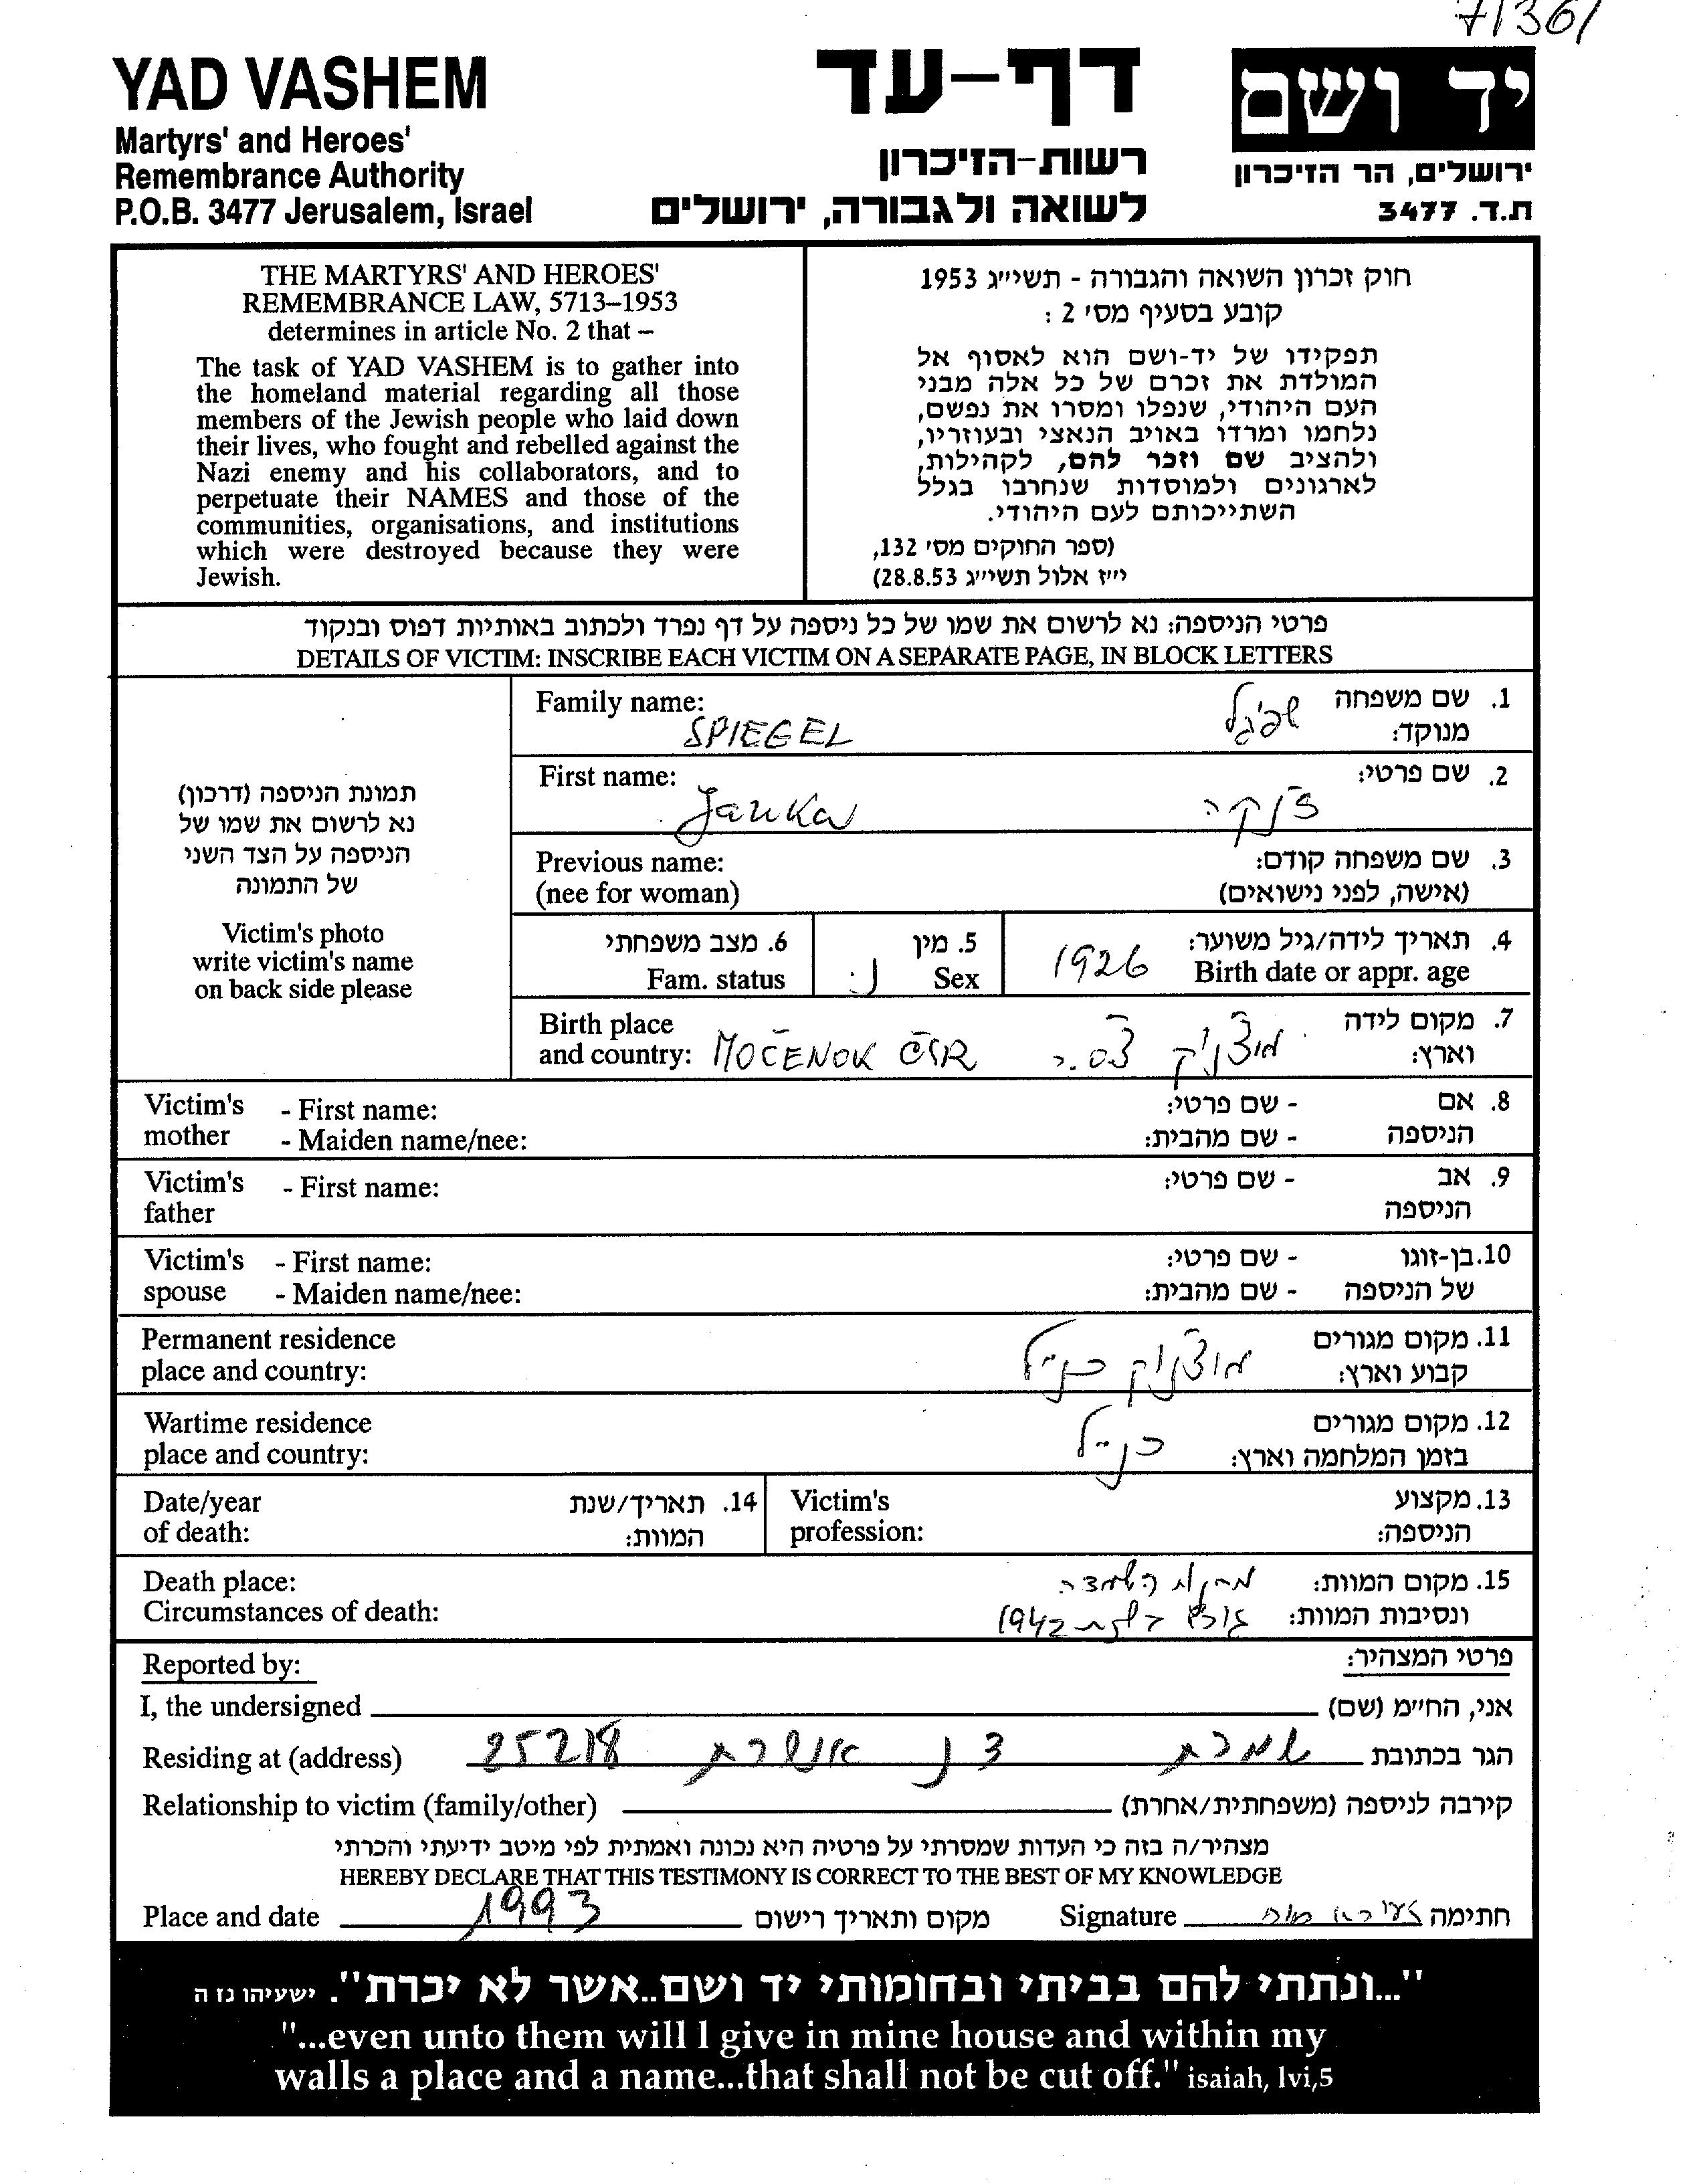 7/361
YAD VASHEM
Martyrs' and Heroes'
Remembrance Authority
P.O.B. 3477 Jerusalem, Israel
דף-עד
רשות-הזיכרון
לשואה ולגבורה, ירושלים
יד ושם
ירושלים, הר הזיכרון
ת.ד. 3477
THE MARTYRS' AND HEROES'
REMEMBRANCE LAW, 5713–1953
determines in article No. 2 that –
The task of YAD VASHEM is to gather into
the homeland material regarding all those
members of the Jewish people who laid down
their lives, who fought and rebelled against the
Nazi enemy and his collaborators, and to
perpetuate their NAMES and those of the
communities, organisations, and institutions
which were destroyed because they were
Jewish.
חוק זכרון השואה והגבורה - תשי״ג 1953
קובע בסעיף מס' 2 :
תפקידו של יד-ושם הוא לאסוף אל
המולדת את זכרם של כל אלה מבני
העם היהודי, שנפלו ומסרו את נפשם,
נלחמו ומרדו באויב הנאצי ובעוזריו,
ולהציב שם וזכר להם, לקהילות,
לארגונים ולמוסדות שנחרבו בגלל
השתייכותם לעם היהודי.
(ספר החוקים מס' 132,
י״ז אלול תשי״ג 28.8.53)
פרטי הניספה: נא לרשום את שמו של כל ניספה על דף נפרד ולכתוב באותיות דפוס ובנקוד
DETAILS OF VICTIM: INSCRIBE EACH VICTIM ON A SEPARATE PAGE, IN BLOCK LETTERS
תמונת הניספה (דרכון)
נא לרשום את שמו של
הניספה על הצד השני
של התמונה
Victim's photo
write victim's name
on back side please
Family name: SPIEGEL
1. שם משפחה מנוקד: שפיגל
First name: Janka
2. שם פרטי: ז'נקה
Previous name:
(nee for woman)
3. שם משפחה קודם:
(אישה, לפני נישואים)
4. תאריך לידה/גיל משוער:
Birth date or appr. age 1926
5. מין
Sex נ.
6. מצב משפחתי
Fam. status
Birth place
and country: MOČENOK ČSR
7. מקום לידה
וארץ: מוצ'ניק צ'.ס.ר
Victim's mother - First name:
- Maiden name/nee:
8. אם הניספה - שם פרטי:
- שם מהבית:
Victim's father - First name:
9. אב הניספה - שם פרטי:
Victim's spouse - First name:
- Maiden name/nee:
10. בן-זוגו של הניספה - שם פרטי:
- שם מהבית:
Permanent residence
place and country:
11. מקום מגורים
קבוע וארץ: מוצ'נוק כנ״ל
Wartime residence
place and country:
12. מקום מגורים
בזמן המלחמה וארץ: כנ״ל
Date/year
of death:
14. תאריך/שנת
המוות:
Victim's
profession:
13. מקצוע
הניספה:
Death place:
Circumstances of death:
15. מקום המוות: מחנה השמדה
ונסיבות המוות: 1942
Reported by:
פרטי המצהיר:
I, the undersigned
אני, הח״מ (שם)
Residing at (address)
הגר בכתובת שמרת ד נ אושרת 25218
Relationship to victim (family/other)
קירבה לניספה (משפחתית/אחרת)
מצהיר/ה בזה כי העדות שמסרתי על פרטיה היא נכונה ואמתית לפי מיטב ידיעתי והכרתי
HEREBY DECLARE THAT THIS TESTIMONY IS CORRECT TO THE BEST OF MY KNOWLEDGE
Place and date 1993 מקום ותאריך רישום
Signature חתימה
"...ונתתי להם בביתי ובחומותי יד ושם..אשר לא יכרת". ישעיהו נו ה
"...even unto them will I give in mine house and within my
walls a place and a name...that shall not be cut off." isaiah, lvi,5